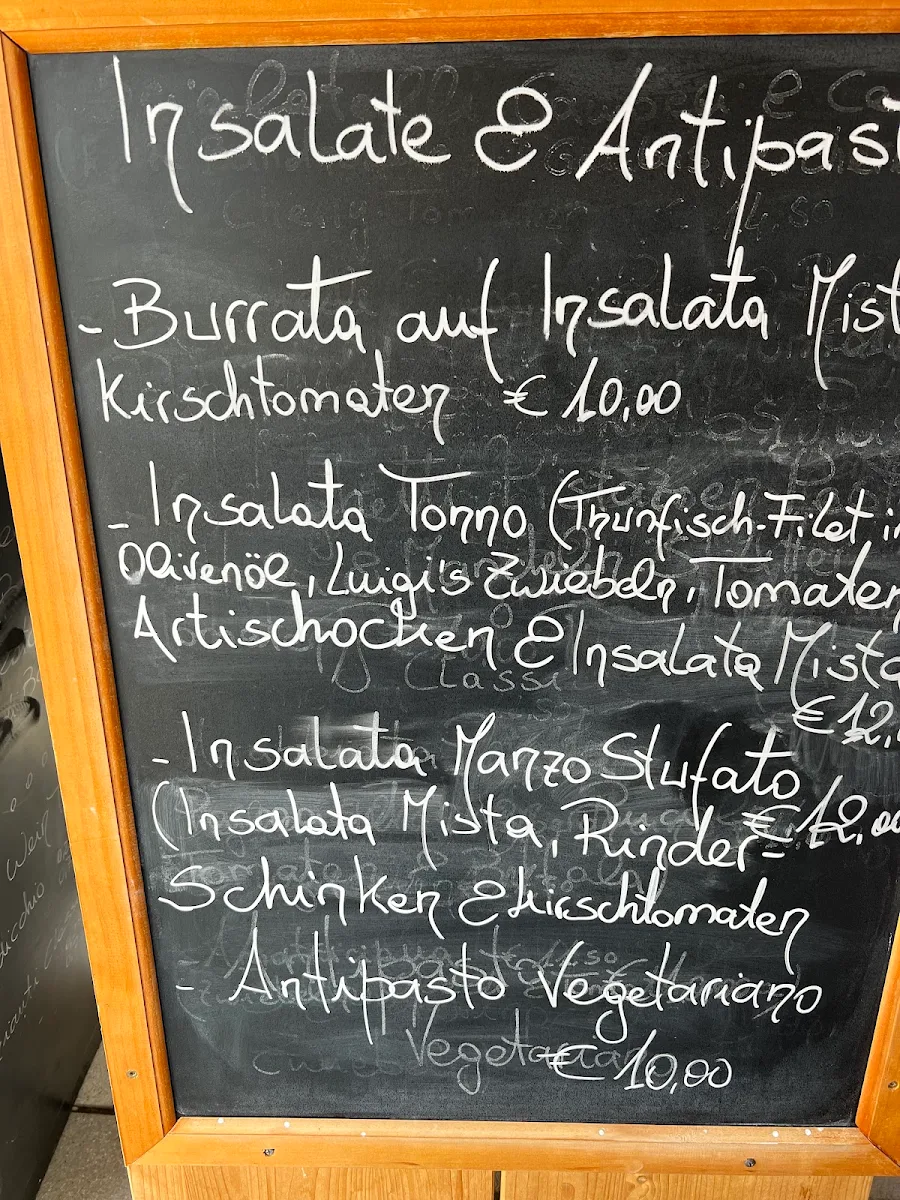 Insalate & Antipast
- Burrata auf Insalata Mist
Kirschtomaten € 10,00
- Insalata Tonno (Thunfisch-Filet in
Olivenöl, Luigi's Zwiebeln, Tomaten
Artischocken & Insalata Mista
€ 12,
- Insalata Manzo Stufato
€ 12,00
(Insalata Mista, Rinder-
Schinken & Kirschtomaten
- Antipasto Vegetariano
€ 10,00